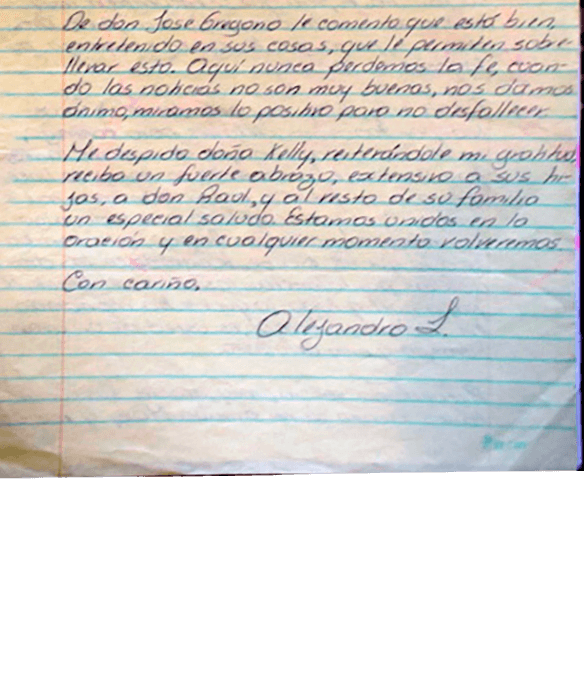 De don Jose Gregorio le comento que está bien,
entretenido en sus cosas, que le permiten sobre-
llevar esto. Aquí nunca perdemos la fe, cuan-
do las noticias no son muy buenas, nos damos
ánimo, miramos lo positivo para no desfallecer.
Me despido doña Kelly, reiterándole mi gratitud,
reciba un fuerte abrazo, extensivo a sus hi-
jas, a don Raul, y al resto de su familia
un especial saludo. Estamos unidos en la
oración y en cualquier momento volveremos.
Con cariño,
Alejandro L.